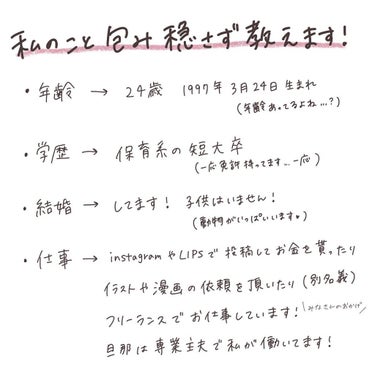 私のこと包み穏さず教えます!
・年齢 → 24歳 1997年 3月24日 生まれ
(年齢あってるよね...?)
・学歴 → 保育系の短大卒
(一応免許持ってます...一応)
・結婚 → してます! 子供はいません!
(動物がいっぱいいます♥)
・仕事 → instagramやLIPSで投稿してお金を貰ったり
イラストや漫画の依頼を頂いたり(別名義)
フリーランスでお仕事しています! \みなさんのおかげ/
旦那は専業主夫で私が働いてます!